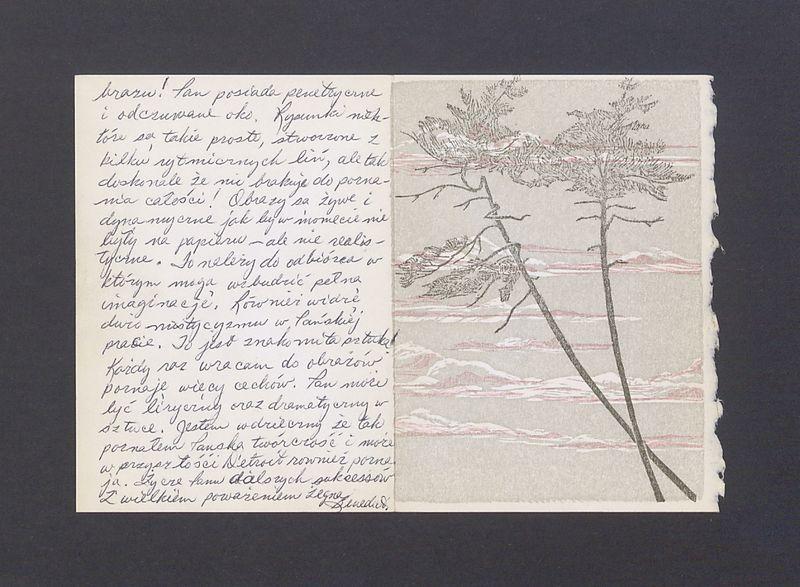 brazu! Pan posiada penetryczne
i odczuwane oko. Rysunki niek-
tóre są takie proste, stworzone z
kilku rytmicznych liń, ale tak
doskonale że nie brakuje do pozna-
nia całości! Obrazy są żywe i
dynamyczne jak by w momecie nie
były na papieru – ale nie realis-
tyczne. To należy do odbiórca w
którym moga wzbudzić pełna
imaginacje. Również widzę
dużo mistycyzmu w Pańskiej
pracie. To jest znakomita sztuka!
Każdy raz wracam do obrazów
poznaje więcy cechów. Pan może
być liryczny oraz dramatyczny w
sztuce. Jestem wdzieczny że tak
poznałem Pańska twórczość i może
w przyszłośći Detroit rownież pozna-
ja. Życze Panu dalszych sukcessów
Z wielkiem poważeniem żegna